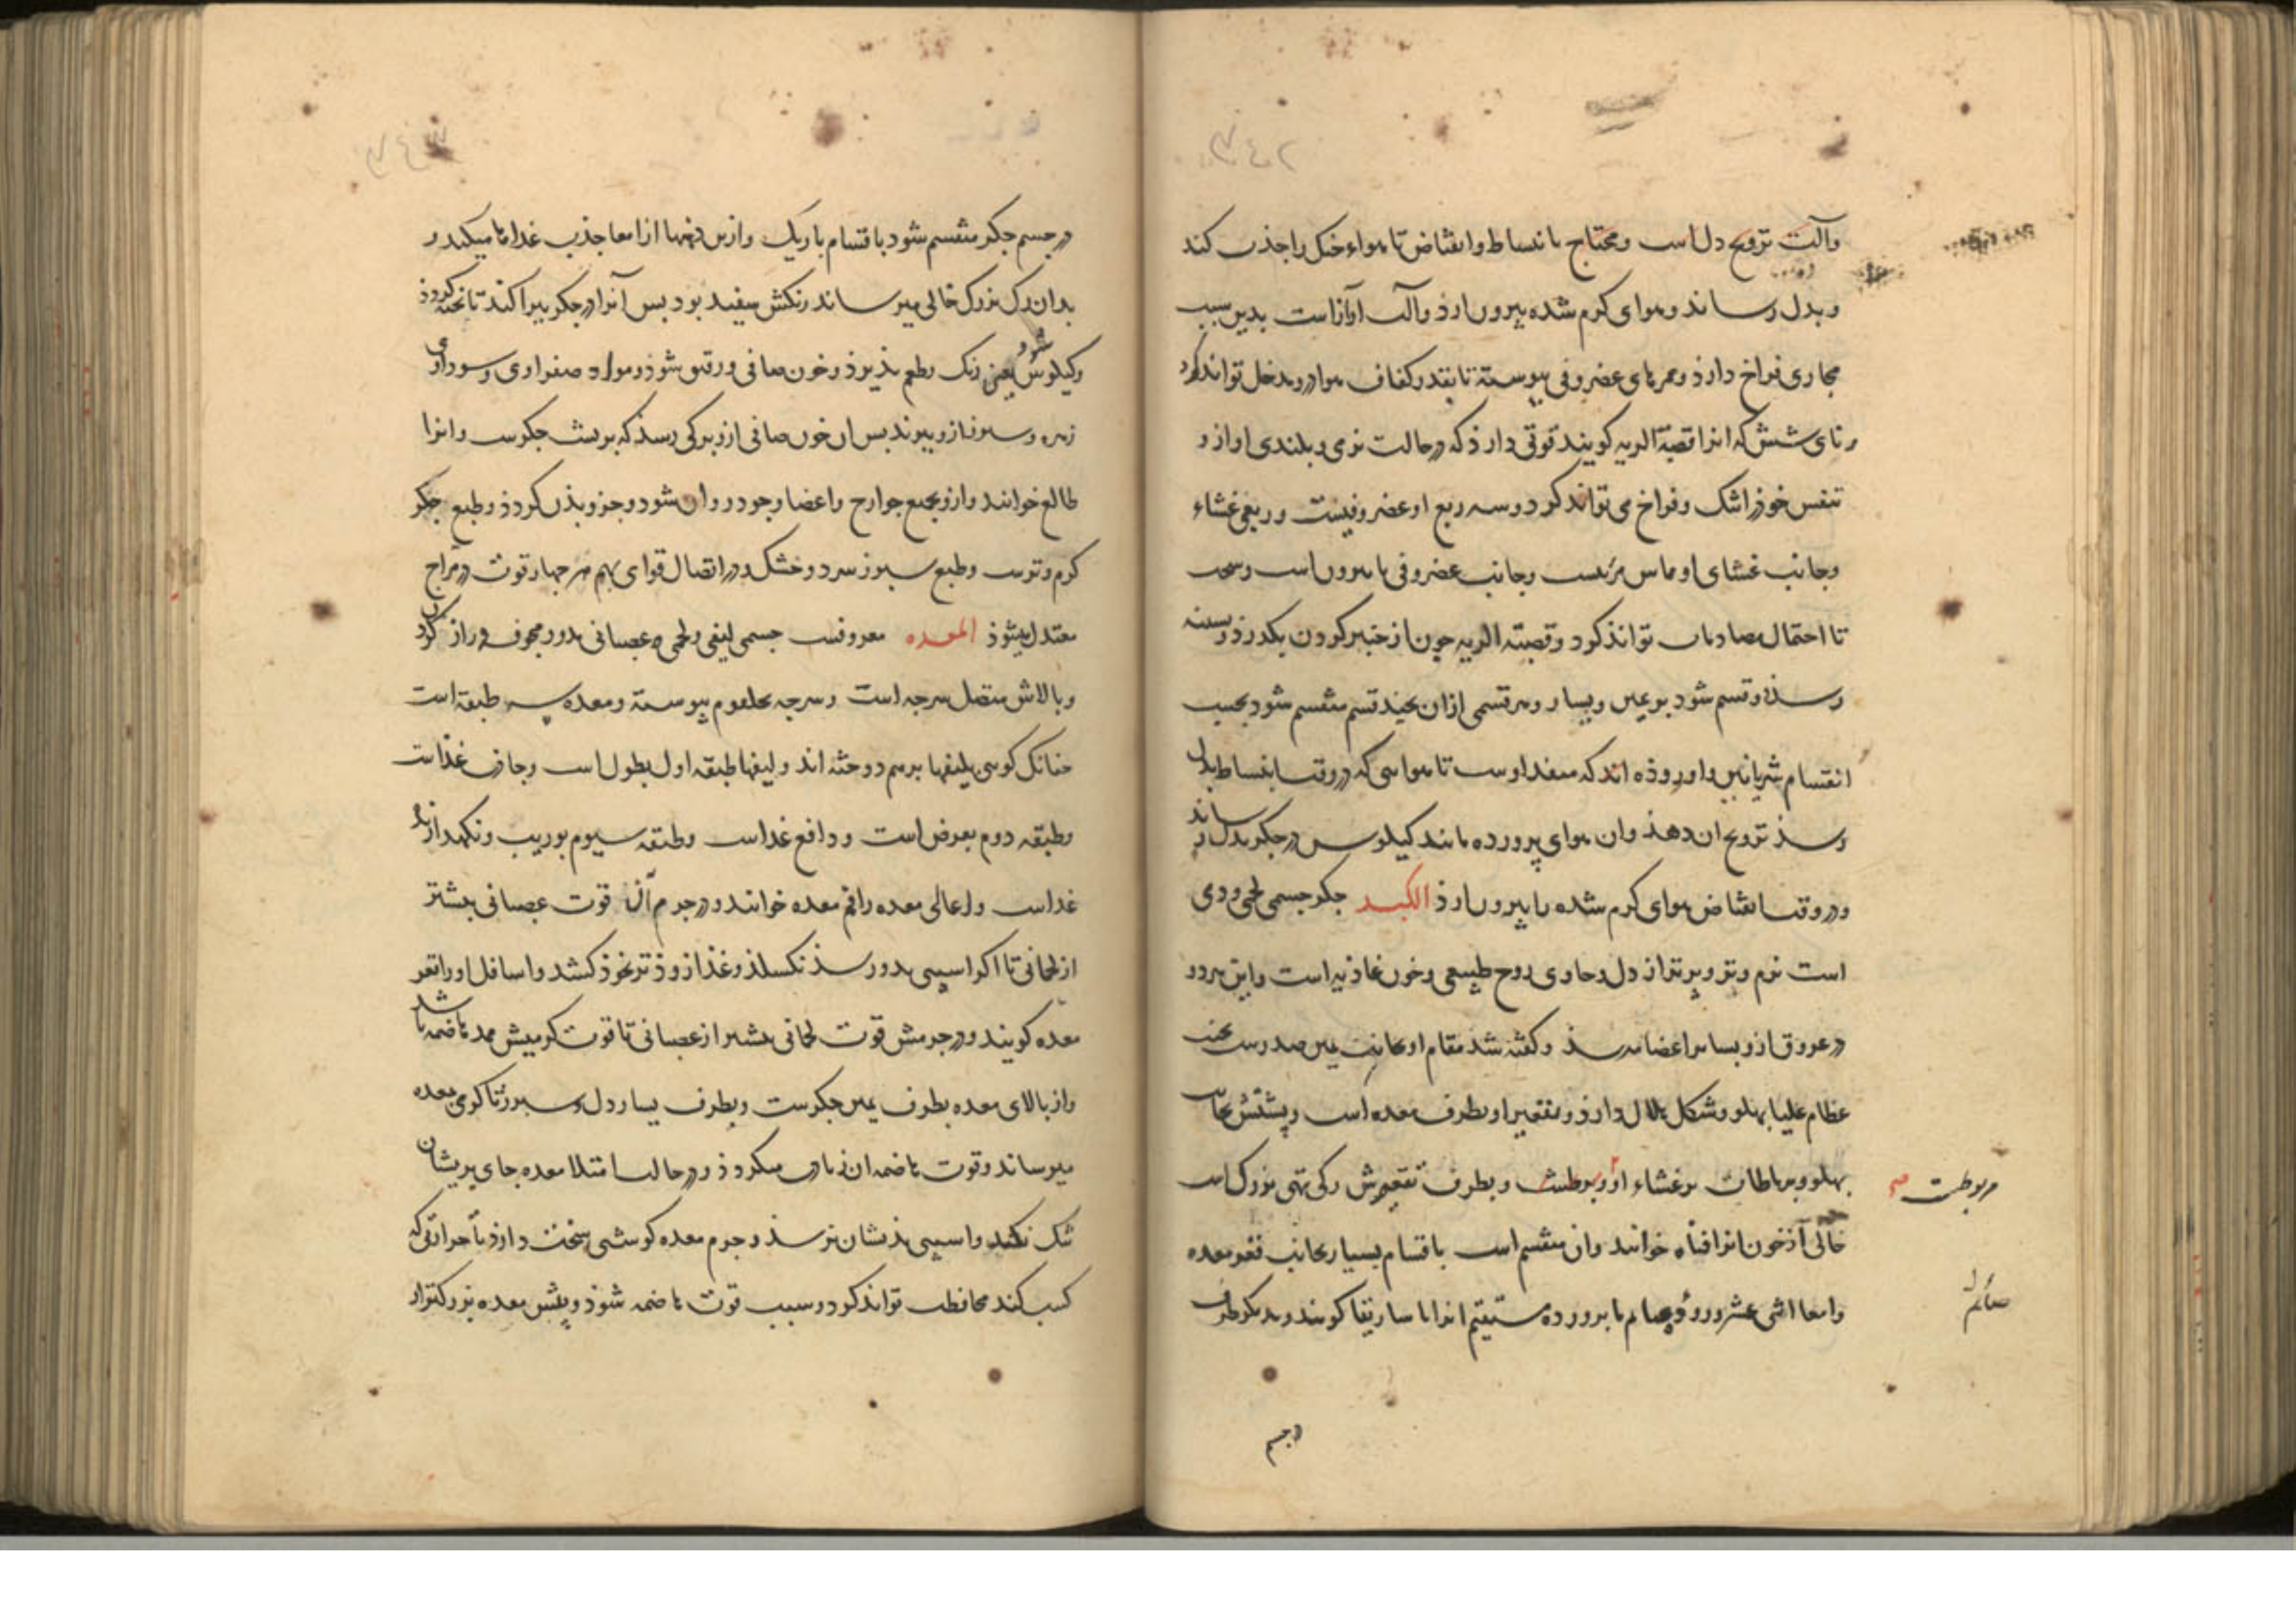 وآلت ترویح دل است ومحتاج بانبساط وانقباض تا هواء خنک را جذب کند
وبدل رساند وهوای کرم شده بیرون ارذ وآلت آوازاست بدین سبب
مجاری فراخ دارذ وممرهای غضروفی پیوسته تا بقدر کفاف هوا درو مدخل تواند کرد
ونای شش که انرا قصبة الریه کویند قوتی دارذ که در حالت نرمی و بلندی اواز و
تنفس خوذ را تنک وفراخ می تواند کرد وسه ربع او غضروفیست وربعی غشاء
وجانب غشای او مماس مریست وجانب غضروفی با بیرون است وسخت
تا احتمال مصادمات تواند کرد وقصبته الریه چون از خنجر کردن بکدرذ وبسینه
رسذ دو قسم شود بر یمین ویسار وهر قسمی ازان بچند قسم منقسم شود بحسب
انقسام شریانین واورده اند که منفذ اوست تا هوایی که در وقت انبساط بدل
رسد ترویح ان دهذ وان هوای پرورده مانند کیلوس در جکر بدل رساند
ودر وقت انقباض هوای کرم شده را بیرون ارذ الکبد جکر جسمی لحمی وردی
است نرم وتر وپرتر از دل وحاوی روح طبیعی وخون غاذیه است واین هردو
در عروق ازو بسایر اعضا میرسذ وکفته شد مقام او بجانب یمین صدرست تحت
عظام علیا پهلو وشکل هلال دارذ ومقعیر او بطرف معده است وپشتش بجانب
پهلو وبرباطات بر غشاء او مربوطست وبطرف تقعیرش رکی تهی بزرک است
مربوطست صح
خالی از خون انرا قناه خوانند وان منقسم است باقسام بسیار بجانب قعر معده
وامعا اثنی عشر وروده صایم تا بروده مستقیم انرا ماساریقا کویند وبدیکر طرف
صائم
در جسم
در جسم جکر منقسم شود باقسام باریک وازین دهنها از امعا جذب غذا ها میکند و
بدان رک بزرک خالی میرساند رنکش سفید بود بس آنرا در جکر بپراکند تا پخته کردذ
وکیلوس یعنی رنک وطعم پذیرذ وخون صافی ورقیق شوذ ومواد صفراوی وسوداوی
شود
زهره وسپرز ازو بیرند بس ان خون صافی ازو برکی رسذ که بر پشت جکرست وانرا
طالع خوانند وازو بجمیع جوارح واعضا وجود روان شود وجزو بذن کردذ وطبع جکر
کرم وترست وطبع سپرز سرد وخشک ودر اتصال قوای بهم هر چهار قوت در مزاج
معتدل میشوذ المعده معروفست جسمی لیفی ولحمی وعصبانی مدور مجوف دراز کردن
وبالاش متصل سرجه است وسرجه بحلقوم پیوسته ومعده سه طبقه است
چنانک کویی بلیفها برهم دوخته اند ولیفها طبقه اول بطول است وجاذب غذاست
وطبقه دوم بعرض است ودافع غذاست وطبقه سیوم بوریب ونکهدارنده
غذاست واعالی معده را فم معده خوانند ودر جرم آن قوت عصبانی بیشتر
از لحمانی تا اکر اسیبی بدو رسذ نکسلذ وغذا زوذتر بخوذ کشد واسافل اورا قعر
معده کویند ودر جرمش قوت لحمانی بیشتر از عصبانی تا قوت کرمیش ممد هاضمه باشد
واز بالای معده بطرف یمین جکرست وبطرف یسار دل وسپرز تا کرمی بمعده
میرساند وقوت هاضمه ان زیادت میکردذ ودر حالت امتلا معده جای بریشان
تنک نکند واسیبی بذیشان نرسذ وجرم معده کوشتی سخت دارذ تا حرارتی که
کسب کند محافظت تواند کرد وسبب قوت هاضمه شوذ وپیش معده بزرکترار